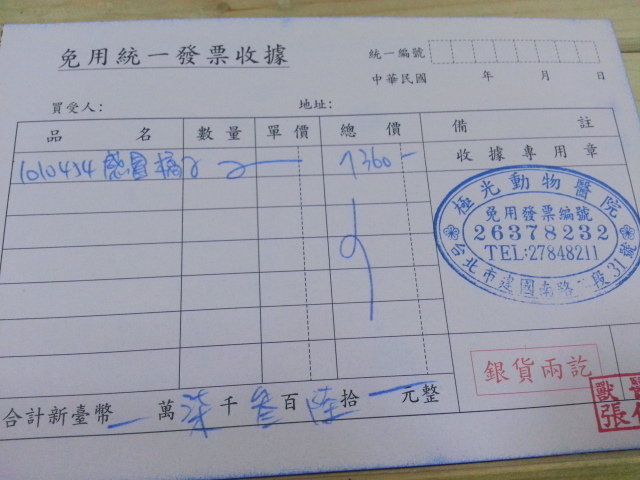 免用統一發票收據
統一編號
中華民國 年 月 日
買受人: 地址:
品名 數量 單價 總價 備註
1010434 感冒 2 7360-
收據專用章
極光動物醫院
免用發票編號
26378232
TEL:27848211
台北市建國南路二段31號
銀貨兩訖
獸醫
張
合計新臺幣 萬柒千叁百陸拾 元整